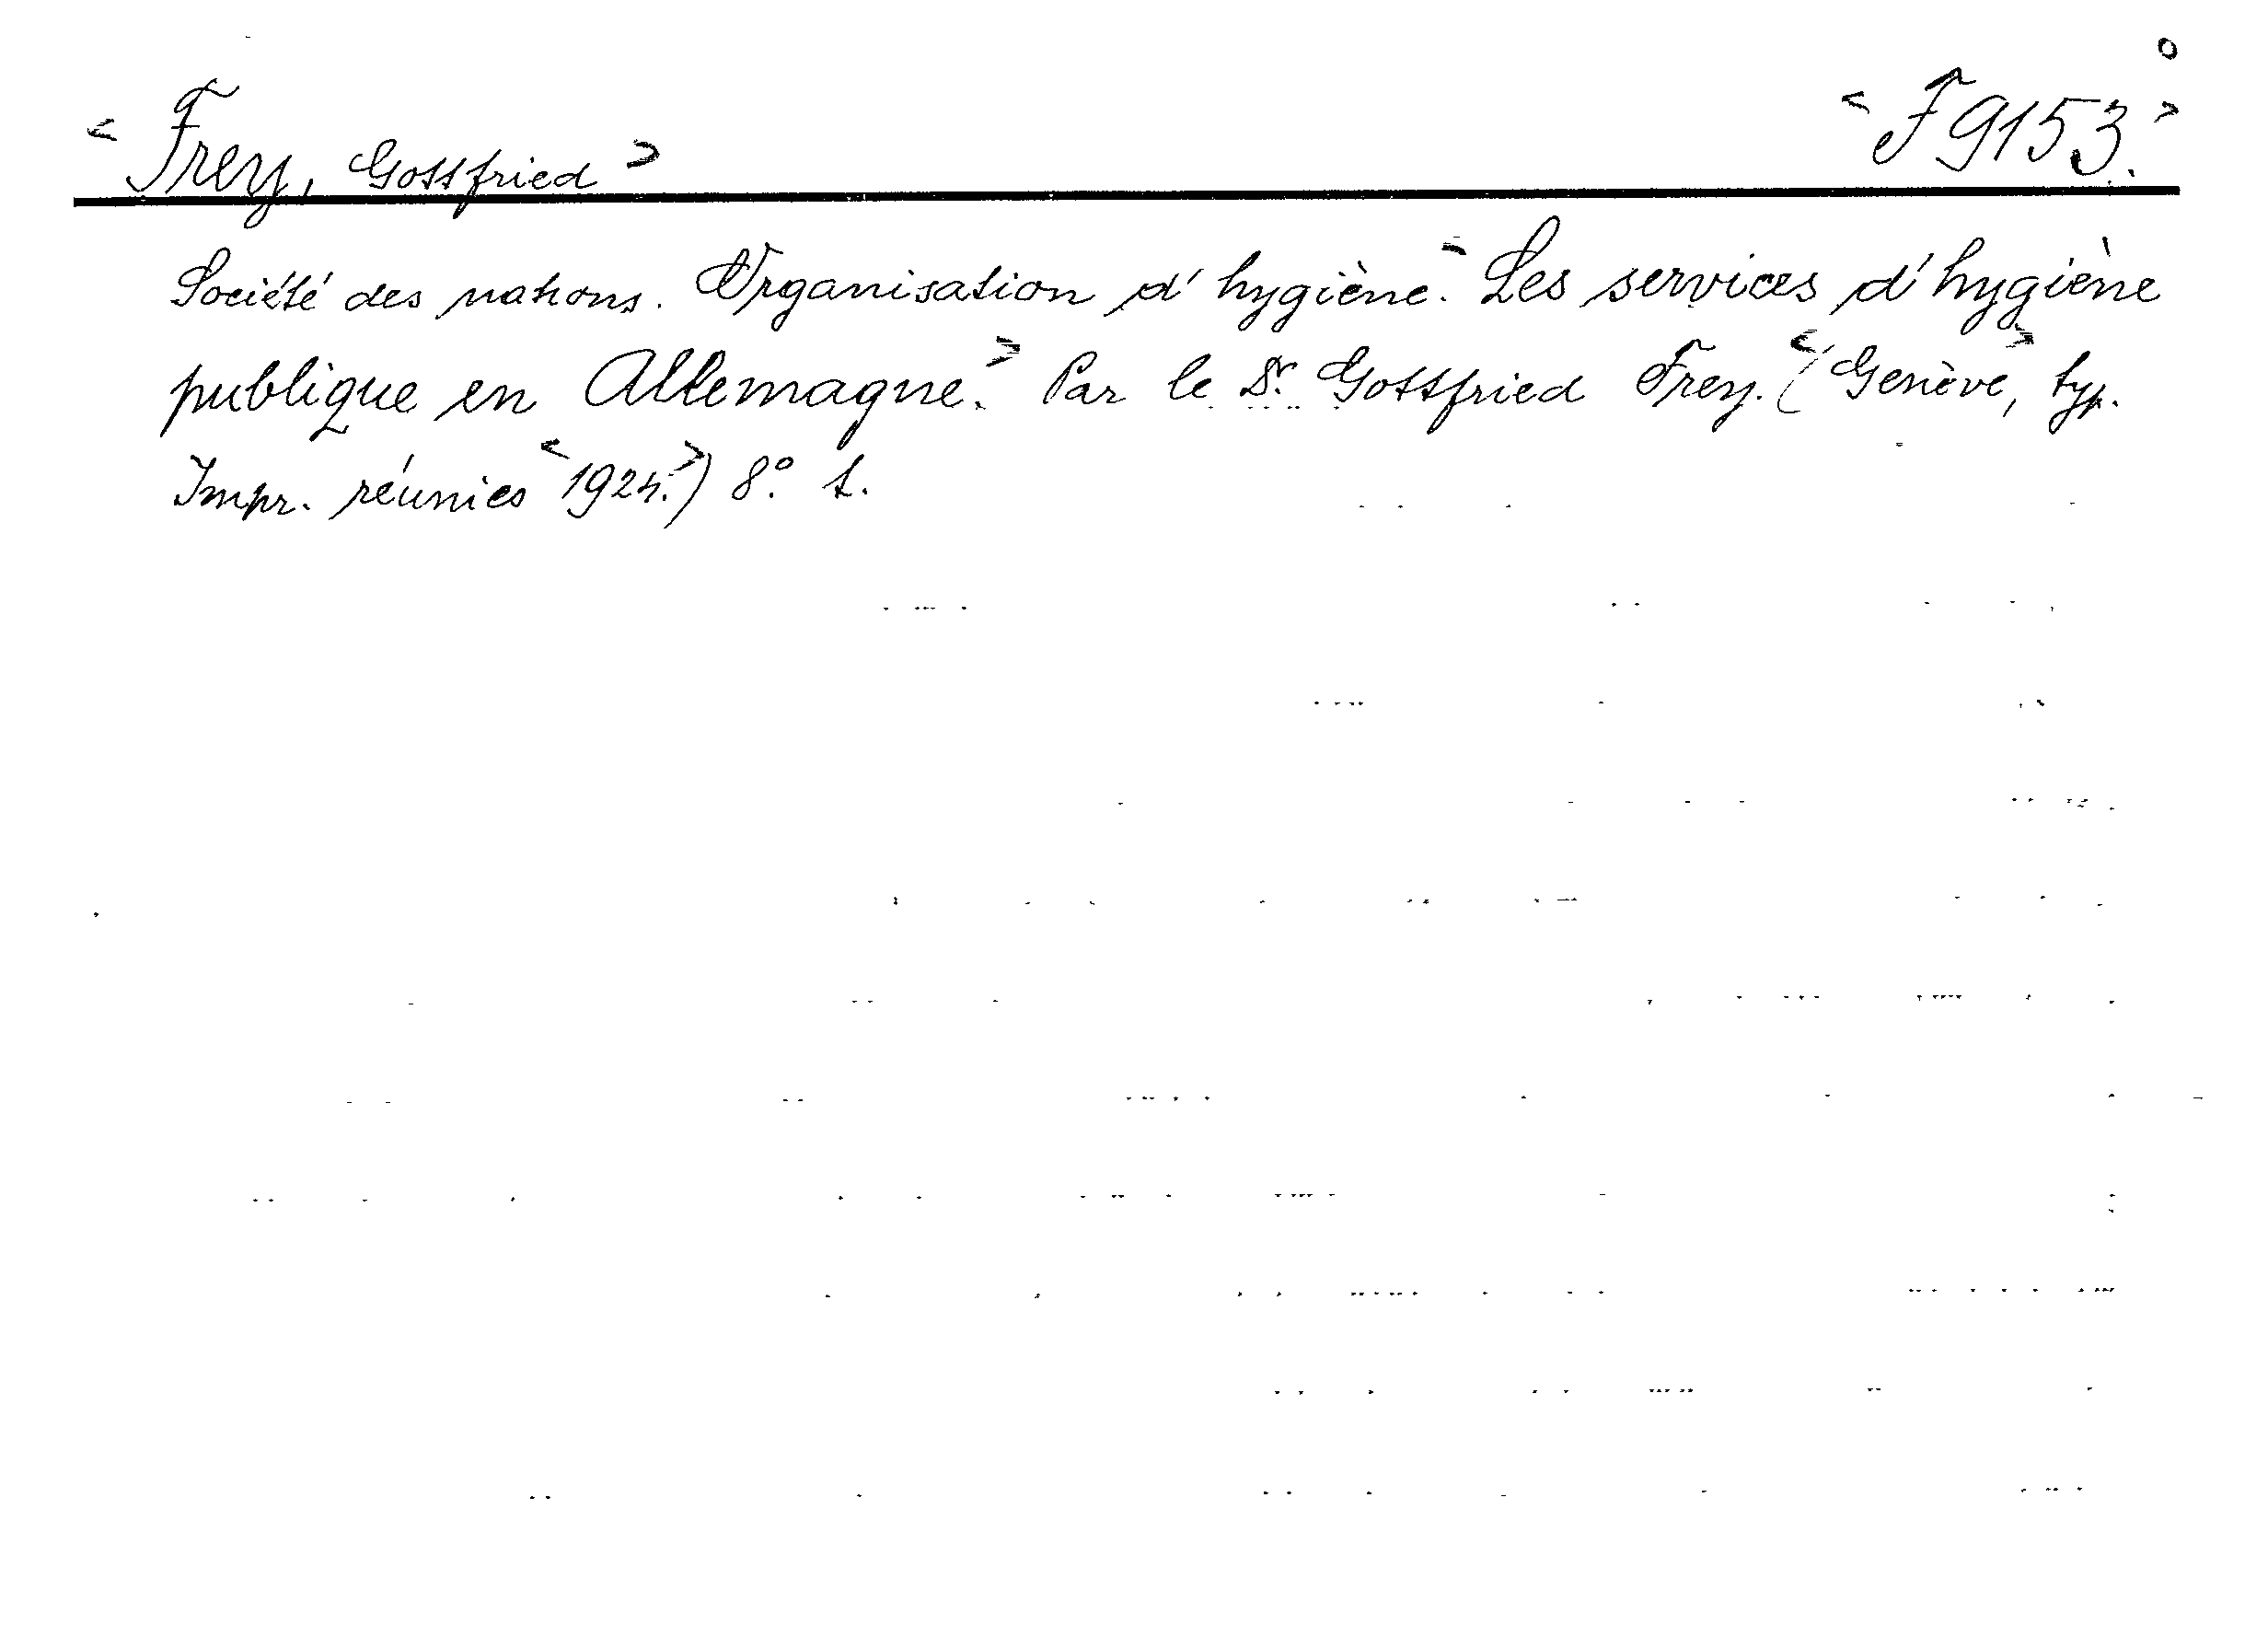 < Frey, Gottfried > < F 9153. >
Société des nations. Organisation d'hygiène. < Les services d'hygiène
publique en Allemagne. > Par le Dr. Gottfried Frey. (< Genève, > typ.
Impr. réunies < 1924. >) 8° t.